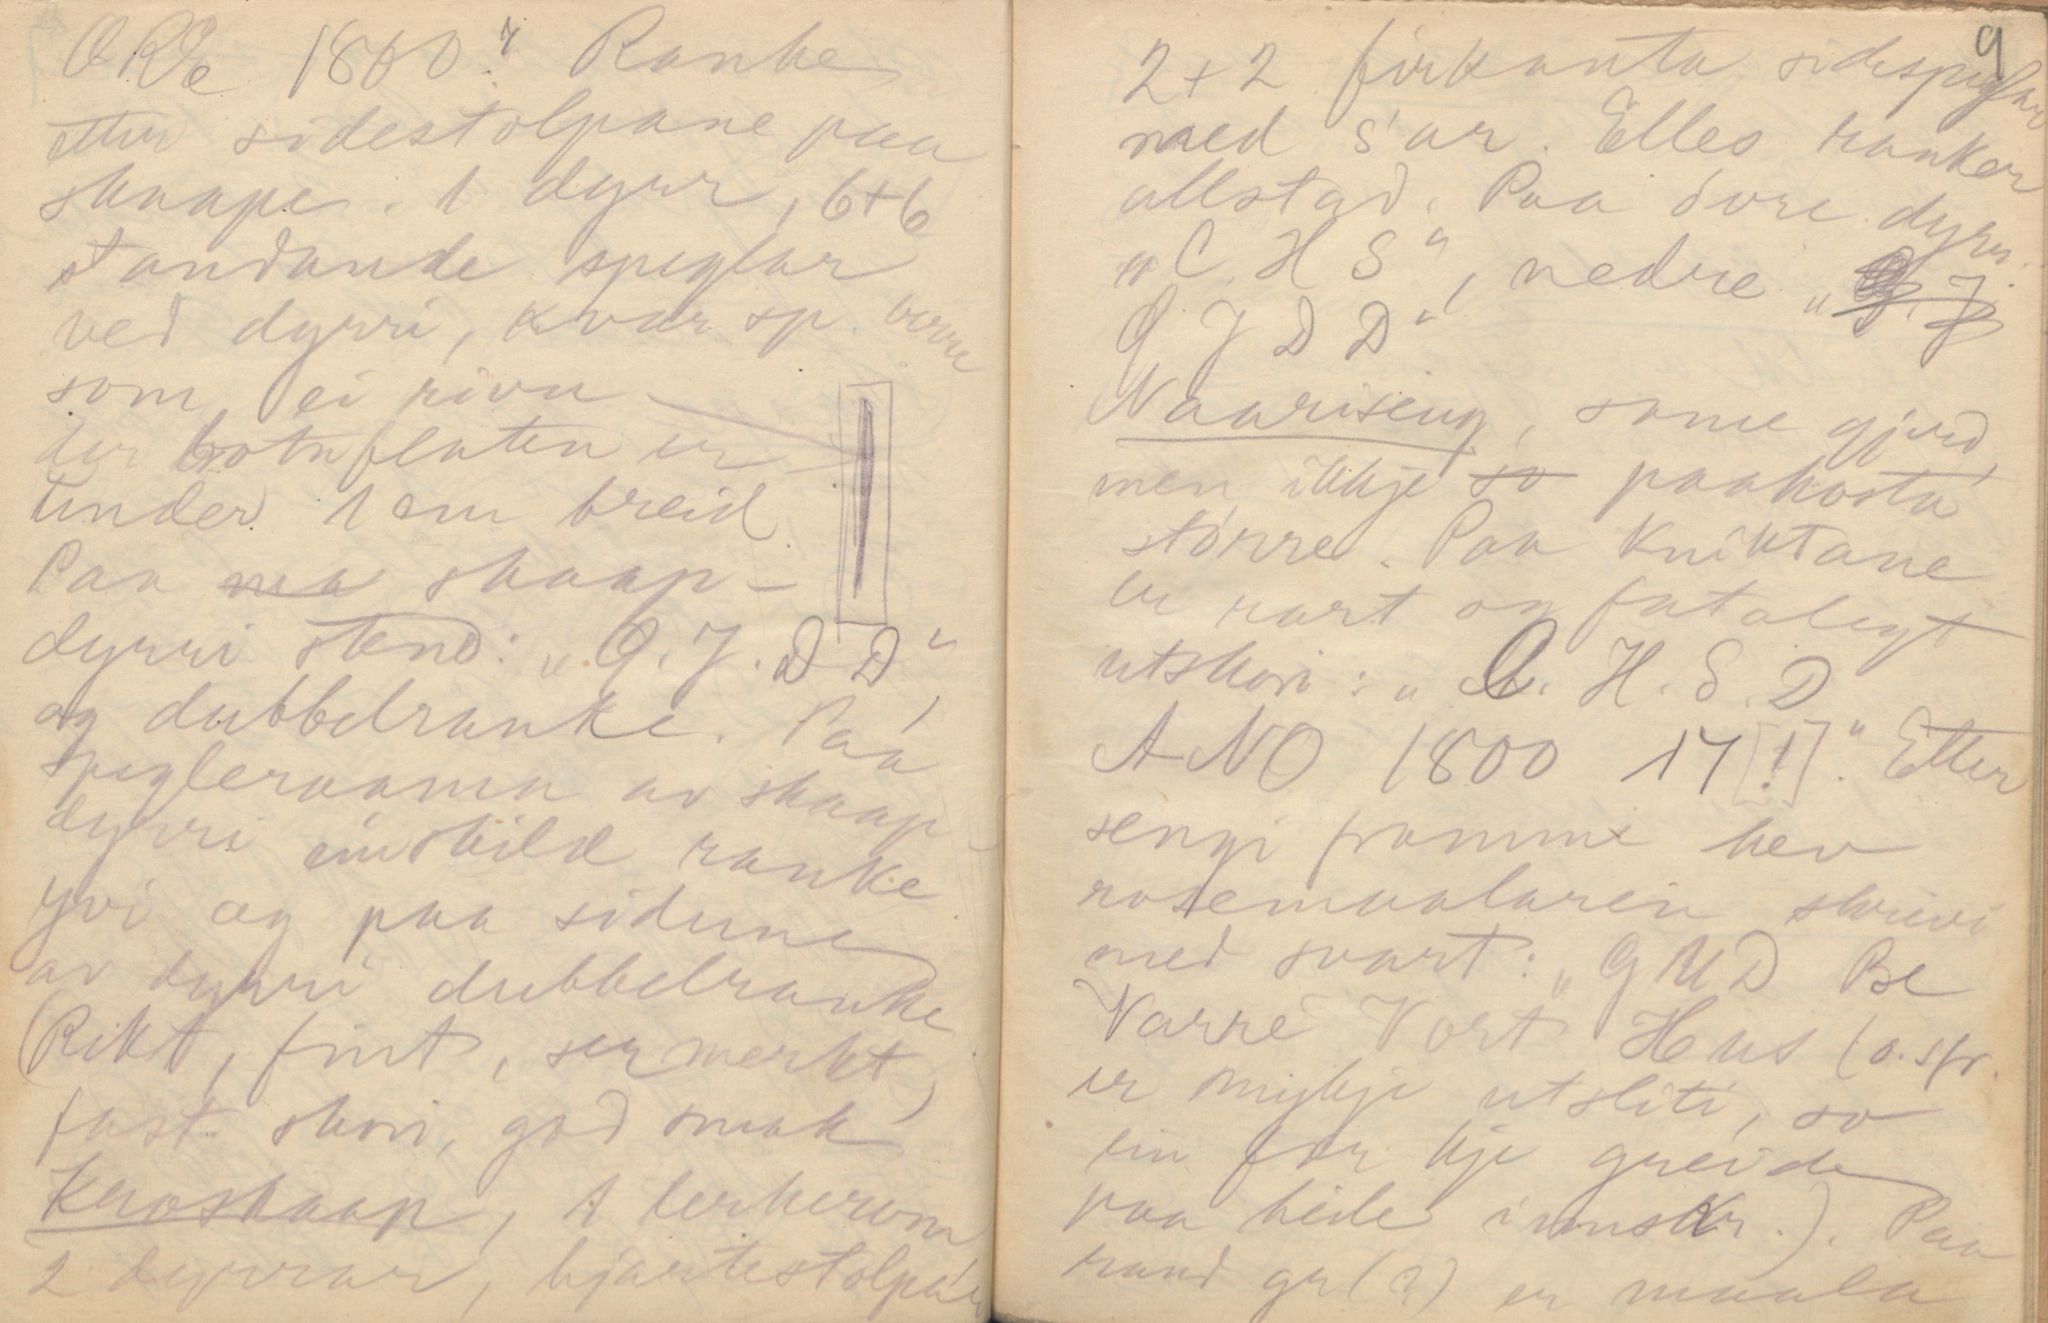 1800." Ranke
etter sidestolpane paa
skaape. 1 dyrr, 6+6
standande speglar
ved dyrri, kvar sp. berre
som ei rivu
der botnflaten er
under 1 cm breid.
Paa skaap-
dyrri stend: „G. J. D D"
og dubbelranke. Paa
spegleraama av skaap
dyrri einskild ranke
yvi og paa sidune
av dyrri dubbelranke
(Rikt, fint, sermerkt,
fast skori, god smak)
Kroskaap, 1 lerkerom
2 dyrrar, hjartestolpar
9
2+2 firkanta sidespeglar
med s'ar. Elles ranker
allstad. Paa óvre dyrri
„C. H S", nedre „G. J.
G J D D"
Naariseng, same gjerd,
men ikkje so paakosta
større. Paa Kniktane
er rart og fatalegt
utskori: „A. H. S. D
ANO 1800 17 [!]." Etter
sengi framme hev
rosemaalaren skrivi
med svart: „GUD Be
Varre Vort Hus (o.s.fr.
er mykje utsliti, so
ein fær kje greide
paa heile innskr.). Paa
rand gr(?) er maala